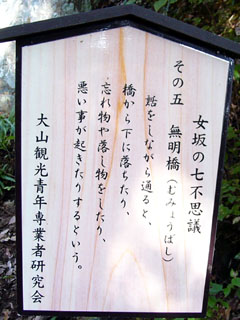 女坂の七不思議
その五　無明橋（むみょうばし）
話をしながら通ると、
橋から下に落ちたり、
忘れ物や落し物をしたり、
悪い事が起きたりするという。
大山観光青年専業者研究会